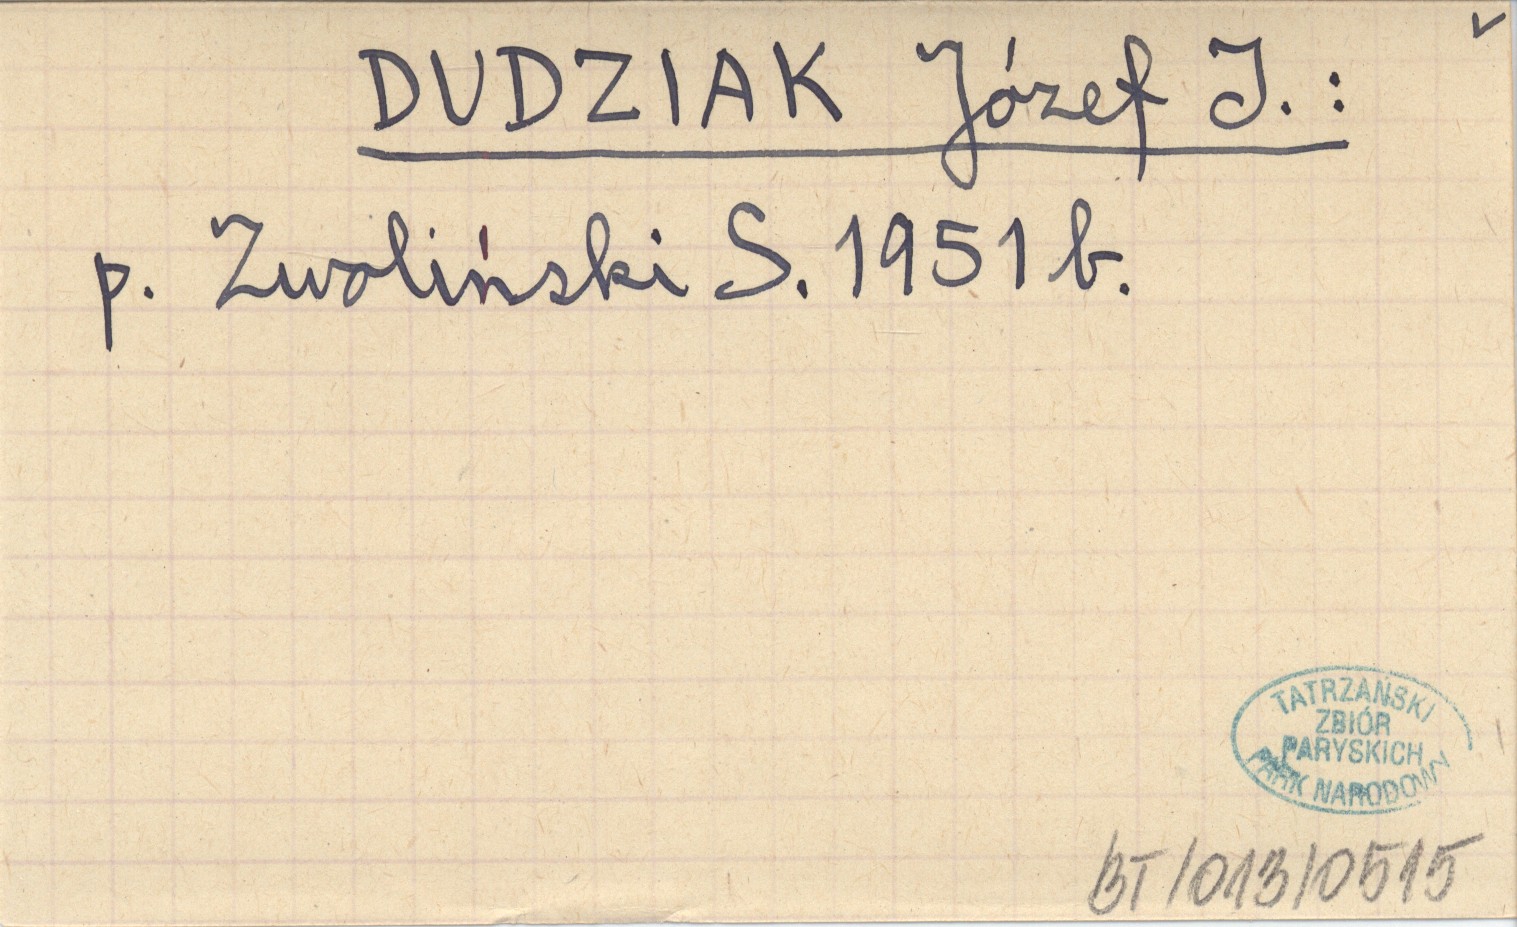 DUDZIAK Józef J.:
p. Zwoliński S. 1951 b.
TATRZAŃSKI
ZBIÓR
PARYSKICH
PARK NARODOWY
BT/013/0515